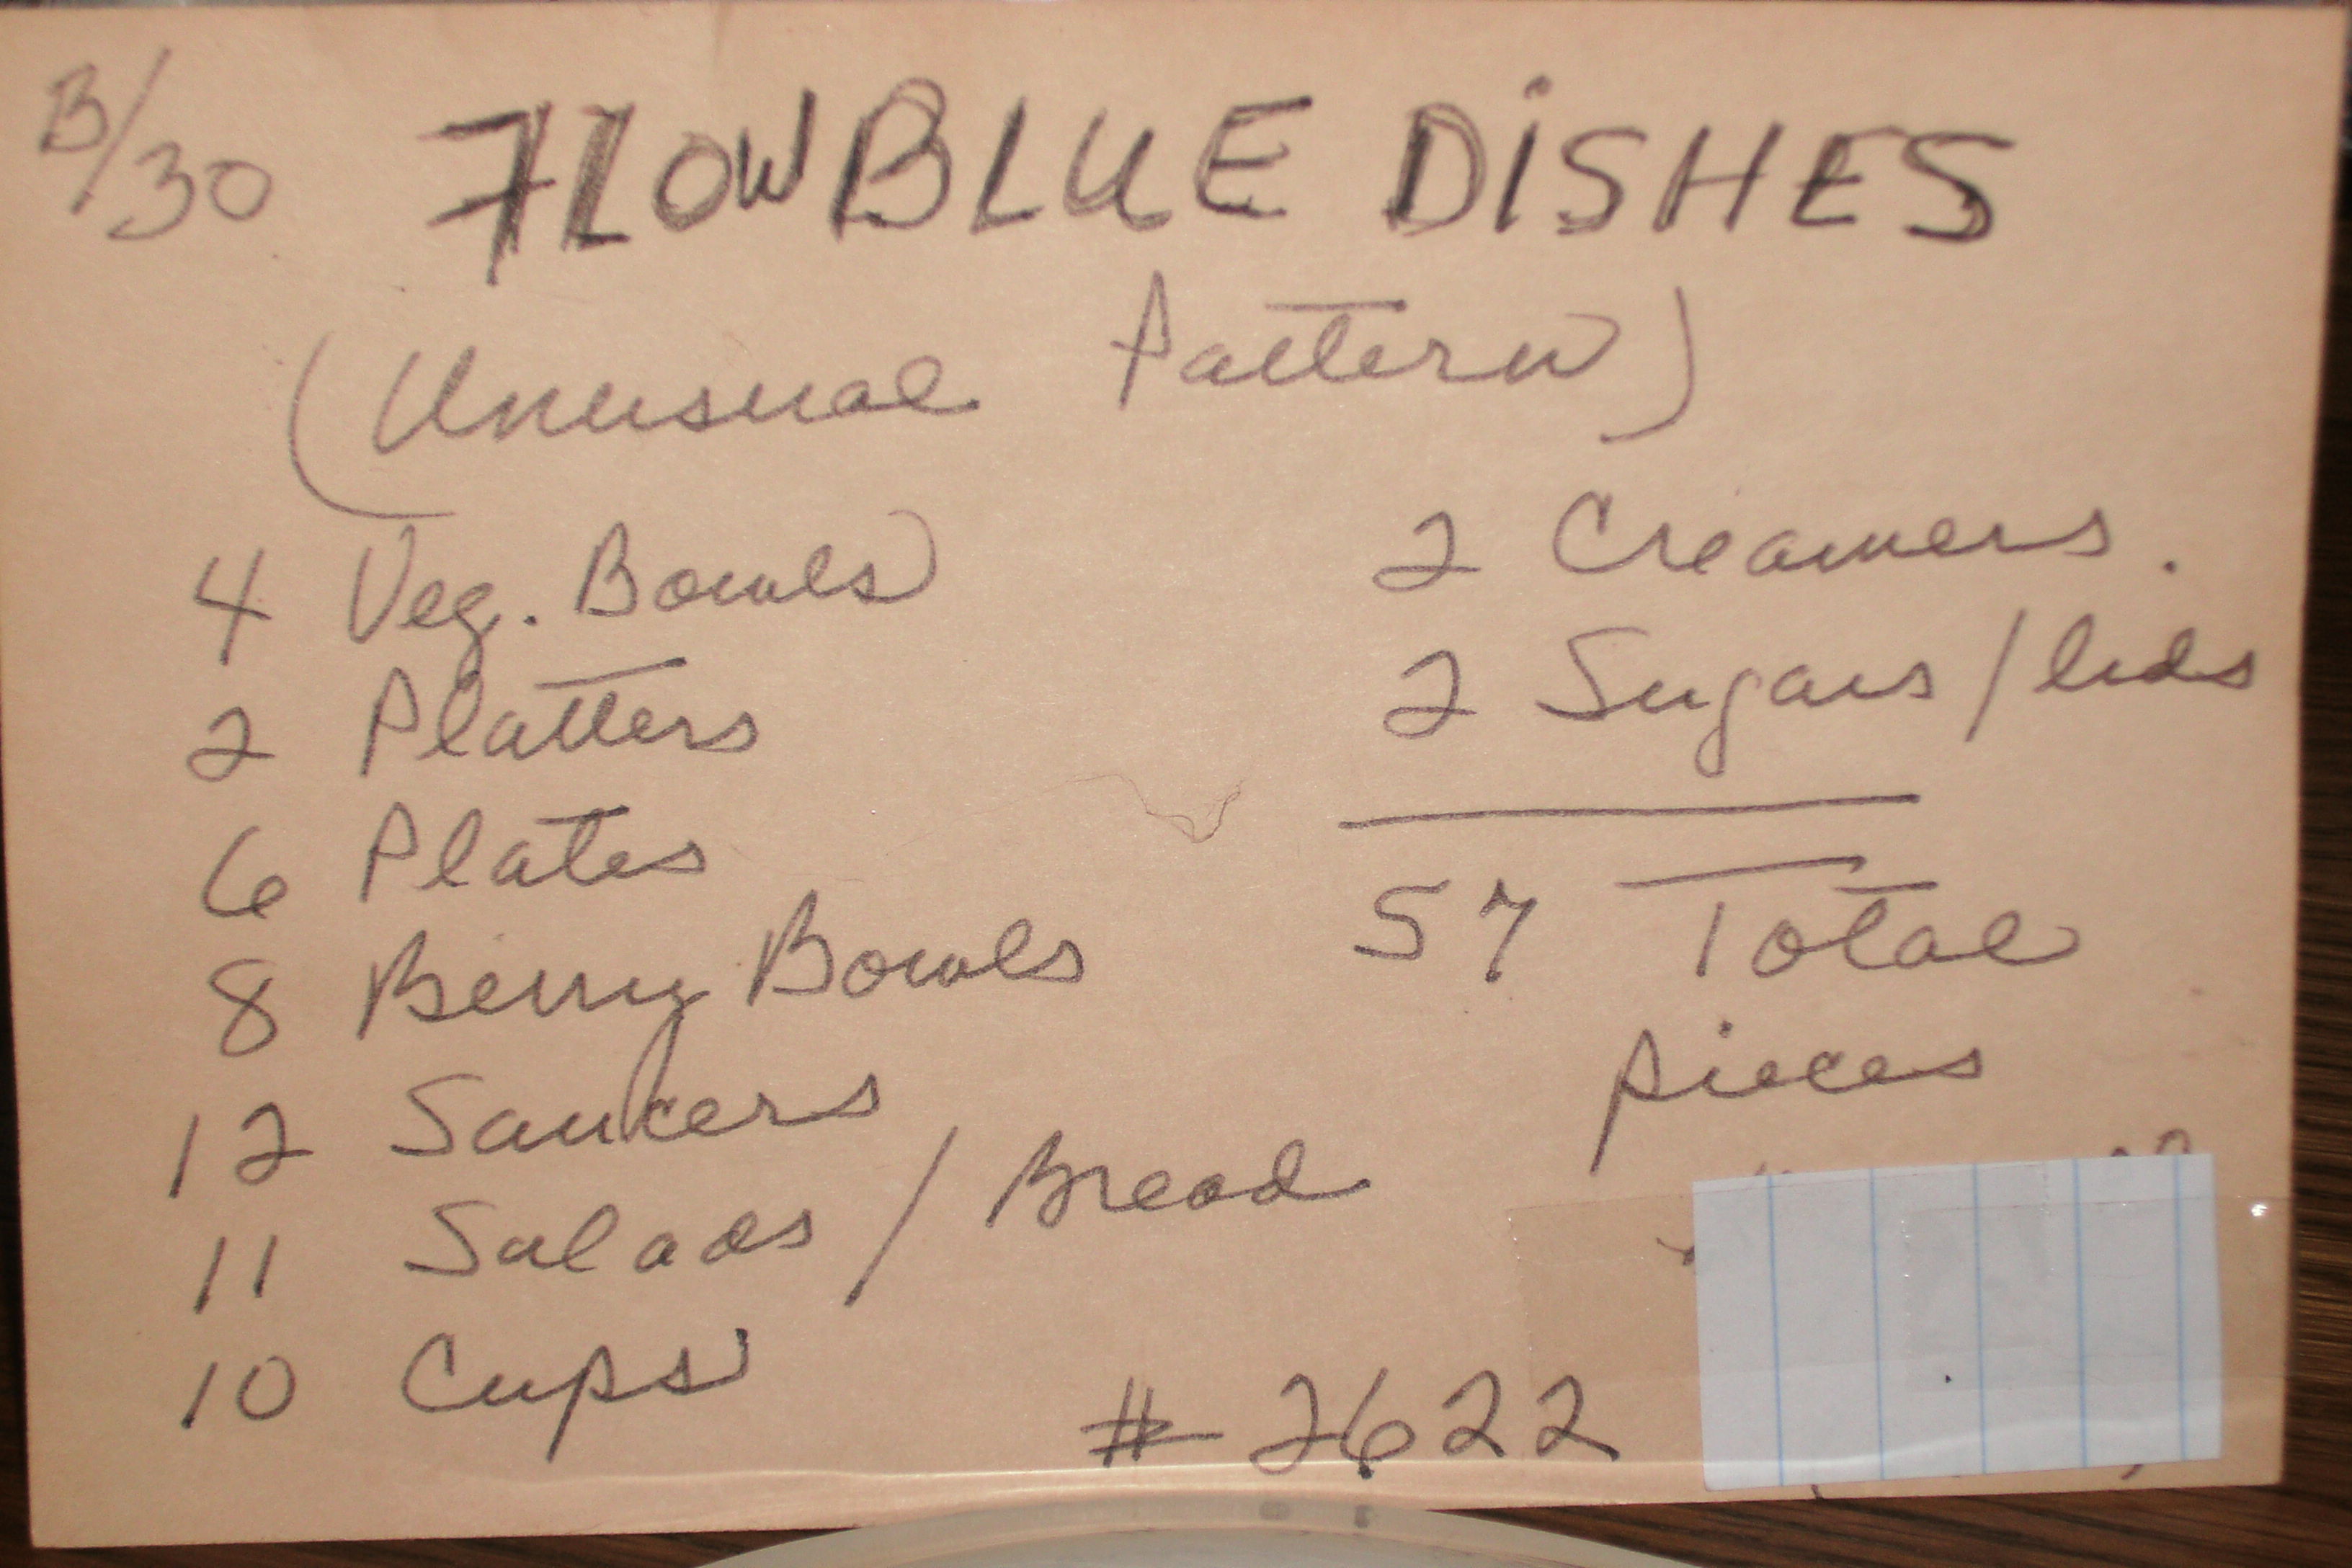 B/30
FLOW BLUE DISHES
(Unusual Pattern)
4 Veg. Bowls
2 Platters
6 Plates
8 Berry Bowls
12 Saucers
11 Salads / Bread
10 Cups
2 Creamers.
2 Sugars / lids
57 Total
pieces
# 2622